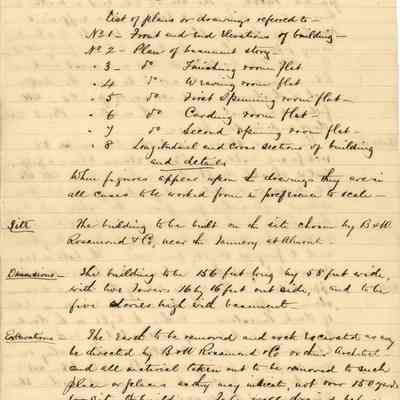 List of plans or drawings referred to —
No 1 — Front and end Elevations of building —
No 2 — Plan of basement story —
" 3 — do Finishing room flat
" 4 do Weaving room flat
" 5 do First Spinning room flat —
" 6 do Carding room flat
" 7 do Second spinning room flat —
" 8 Longitudinal and Cross sections of building
and details
When figures appear upon the drawings they are in
all cases to be worked from in preference to scale —
Site The building to be built on the site chosen by B & W
Rosamond & Co, near the Tannery at Almonte
Dimensions — The building to be 156 feet long by 58 feet wide,
with two Towers 16 by 16 feet out side, and to be
five stories high with basement
Excavations — The Earth to be removed and rock Excavated as may
be directed by B & W Rosamond & Co or their Architect
and all material taken out to be removed to such
place or places as they may indicate, not over 150 yards